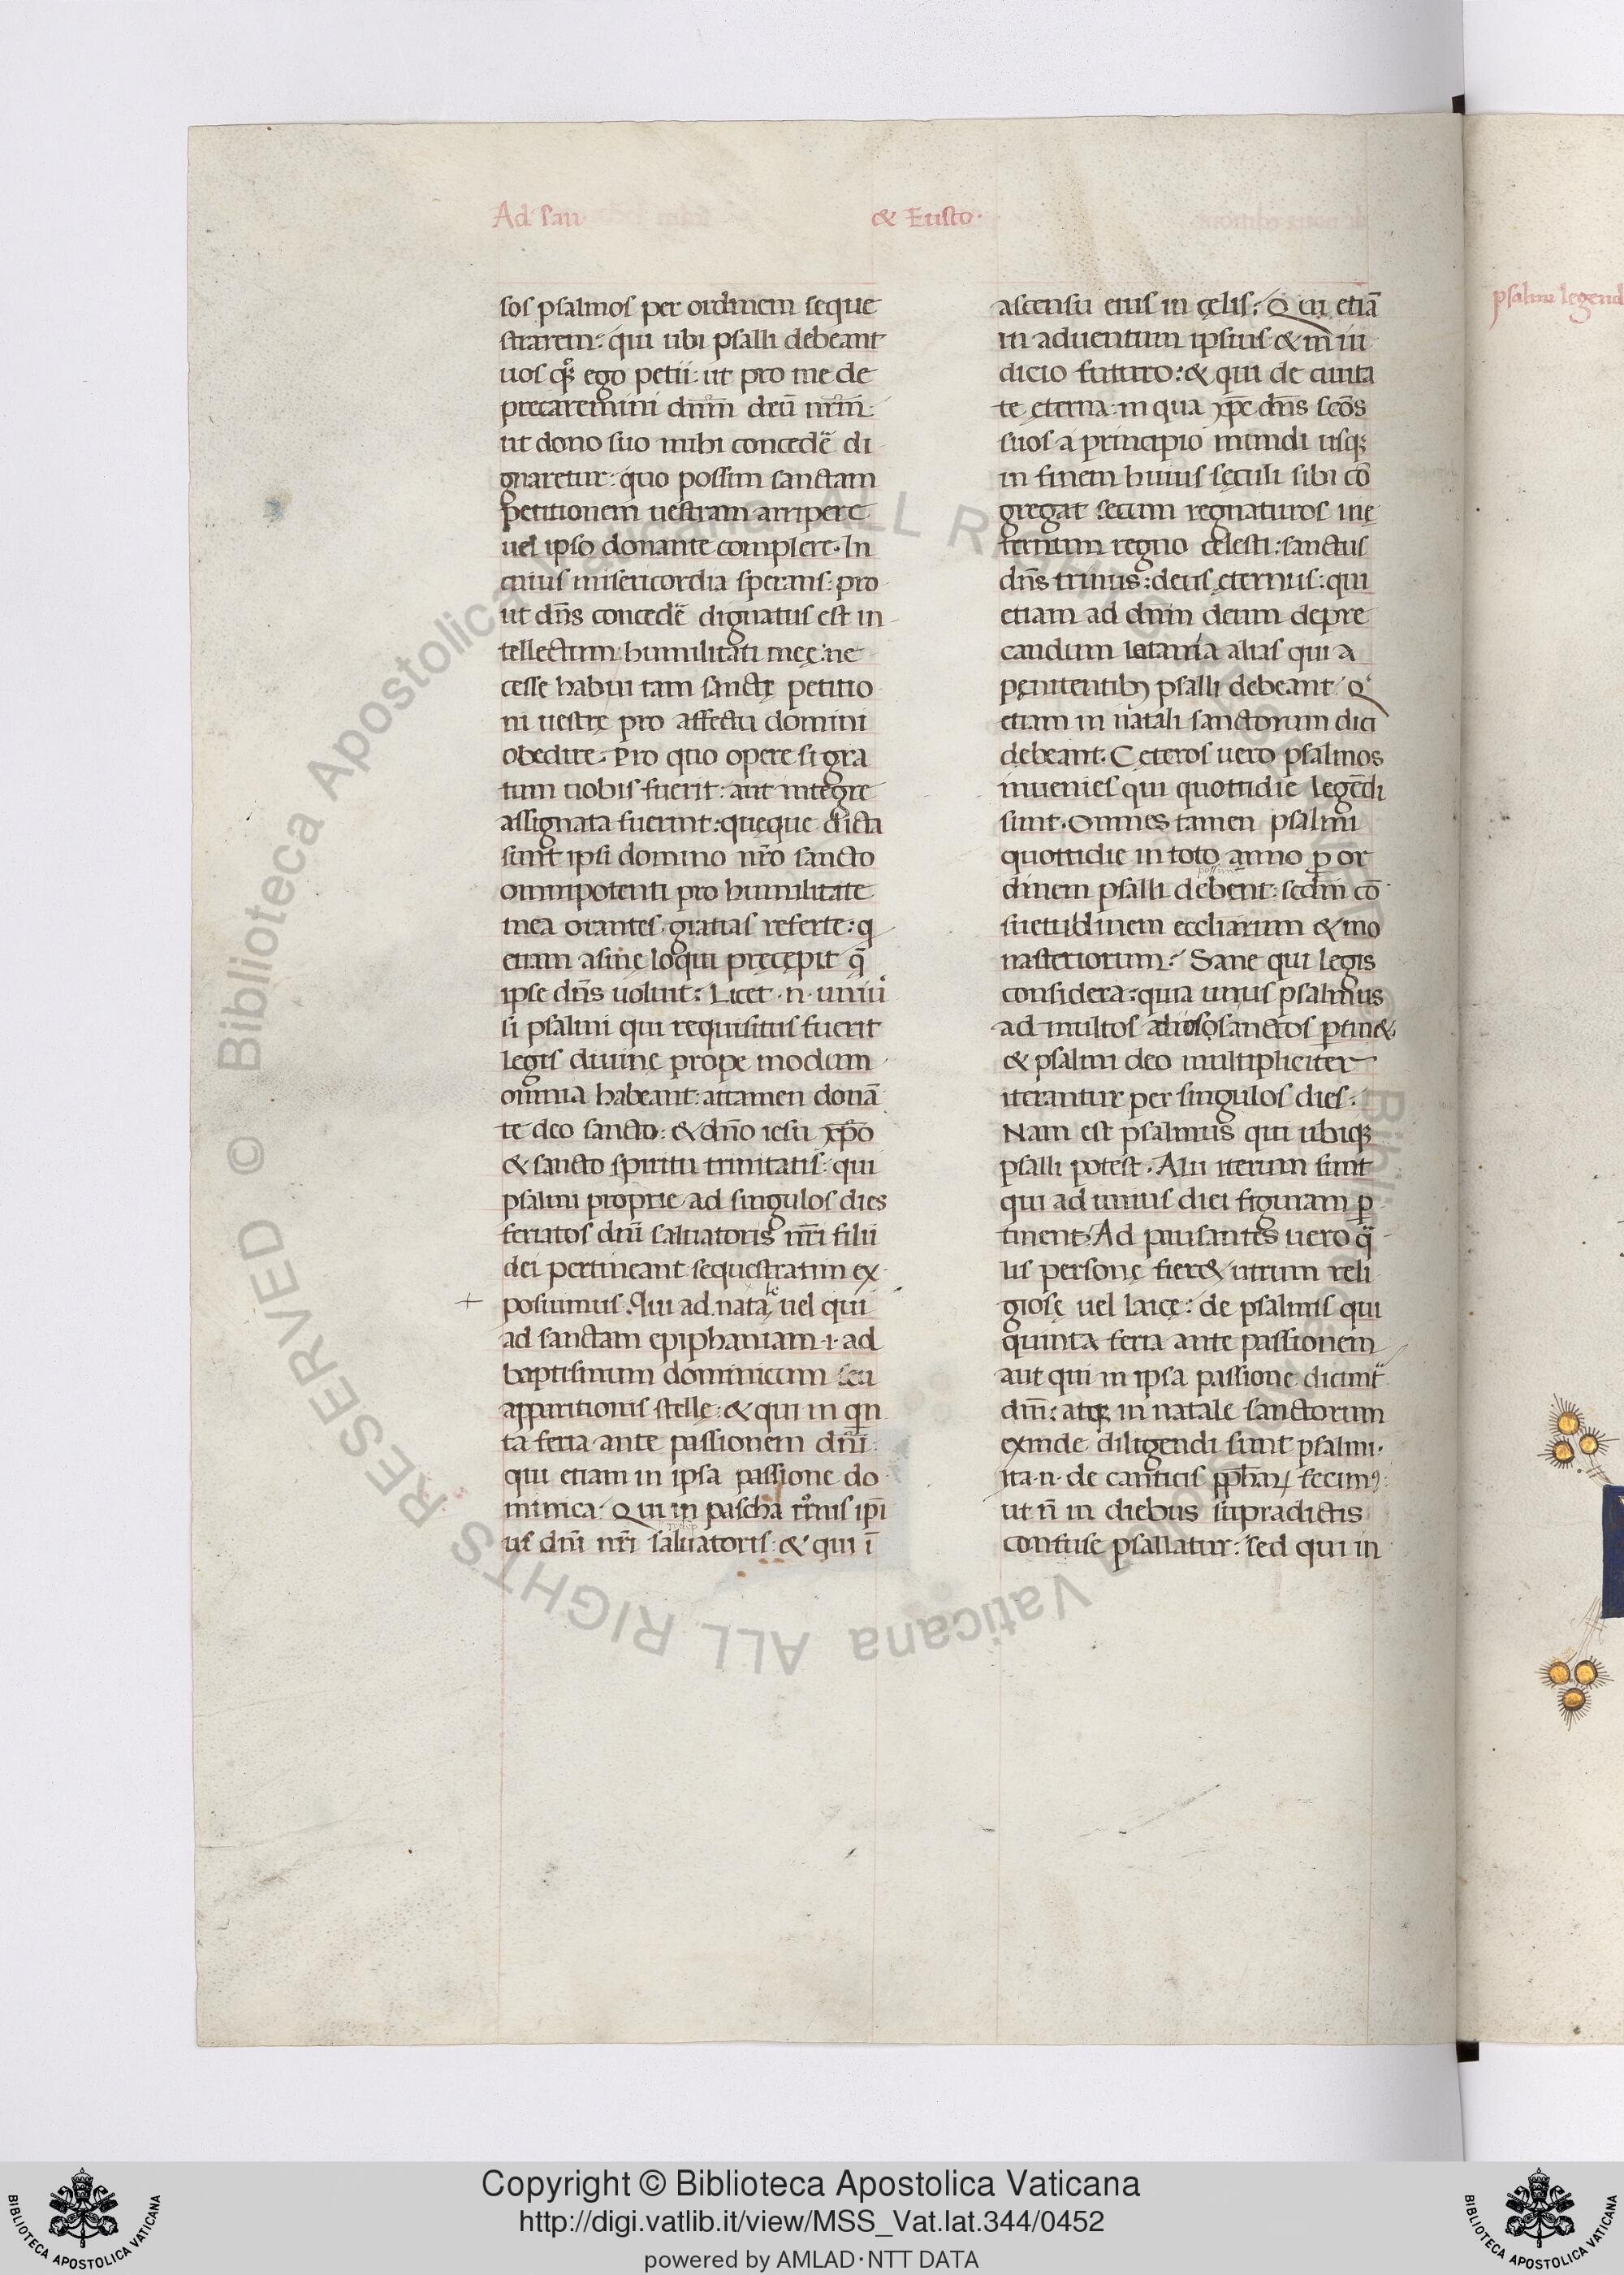 Ad san & Eusto·
sos psalmos per ordinem seque
strarem: qui ubi psalli debeant
uos q̄ꝫ ego petii: ut pro me de
precaremini dn̄m deū nr̄m:
ut dono suo mihi concedē di
gnaretur: quo possim sanctam
petitionem uestram arripere
uel ipso donante complere· In
cuius misericordia sperans: pro
ut dn̄s concedē dignatus est in
tellectum humilitati meę: ne
cesse habui tam sanctę petitio
ni uestrę pro affectu domini
obedire· Pro quo opere si gra
tum uobis fuerit: aut integre
assignata fuerint: quęque dicta
sunt ipsi domino nr̄o sancto
omnipotenti pro humilitate
mea orantes gratias referte: q
etiam asinę loqui pręcępit q̄
ipse dn̄s uoluit: Licet ·n· uniū
si psalmi qui requisitus fuerit
legis diuinę prope modum
omnia habeant: attamen donā
te deo sancto: & dn̄o iesu xp̄o
& sancto spiritu trinitatis: qui
psalmi proprie ad singulos dies
feriatos dn̄i saluatoris nr̄i filii
dei pertineant sequestratim ex
posuimus: Qui ad natalę uel qui
ad sanctam epiphaniam ·i· ad
baptismum dominicum seu
apparitionis stelle: & qui in qn
ta feria ante passionem dn̄i:
qui etiam in ipsa passione do
minica· Qui in pascha
us dn̄i nr̄i saluatoris: & qui ī
ascensu eius in cęlis: Qui etiā
in aduentum ipsius & in iu
dicio futuro: & qui de ciuita
te ęterna in qua xp̄e dn̄s sc̄os
suos a principio mundi usqꝫ
in finem huius sęculi sibi cō
gregat secum regnaturos in ę
ternum regno cęlesti: sanctus
dn̄s trinus: deus ęternus: qui
etiam ad dn̄m deum depre
candum alias qui a
pęnitentibꝫ psalli debeant· Q
etiam in natali sanctorum dici
debeant· Cęteros uero psalmos
inuenies qui quottidie legēdi
sunt· Omnes tamen psalmi
quottidie in toto anno ꝑ or
dinem psalli debent: sedm̄ cō
suetudinem eccliarum & mo
nasteriorum: Sane qui legis
considera: quia unus psalmus
ad multos sanctos ꝑtin&
& psalmi deo multipliciter
iterantur per singulos dies:
Nam est psalmus qui ubiqꝫ
psalli potest· Alii iterum sunt
qui ad unius diei figuram ꝑ
tinent· Ad pausantes uero q̄
lis personę fier& utrum reli
giosę uel laicę: de psalmis qui
quinta feria ante passionem
aut qui in ipsa passione dicunt
dn̄i: atqꝫ in natale sanctorum
exinde diligendi sunt psalmi·
ita ·n· de canticis fecimꝰ:
ut n̄ in diebus supradictis
confuse psallatur: sed qui in
Copyright © Biblioteca Apostolica Vaticana
http://digi.vatlib.it/view/MSS_Vat.lat.344/0452
powered by AMLAD·NTT DATA